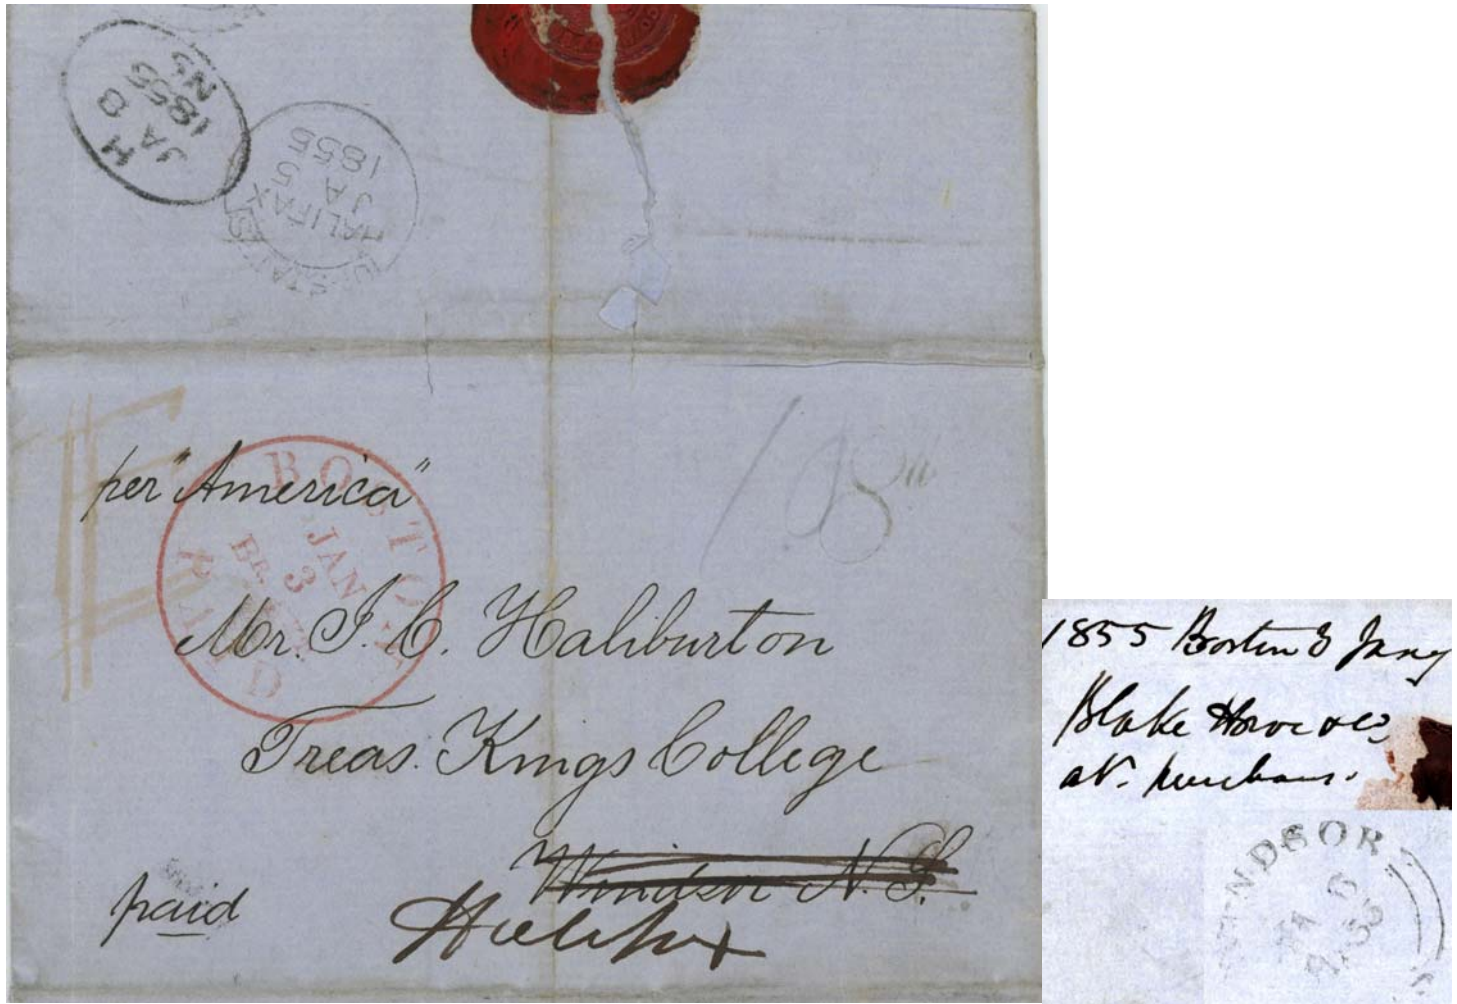 H
JA 8
1855
NS
HALIFAX
JA 5
1855
per "America"
BOSTON
JAN
3
BR. PKT.
PAID
Mr. J. C. Haliburton
Treas. Kings College
Windsor N.S.
Halifax
paid
1855 Boston 3 Jany
Blake Howe & Co
WINDSOR
JA 6
1855